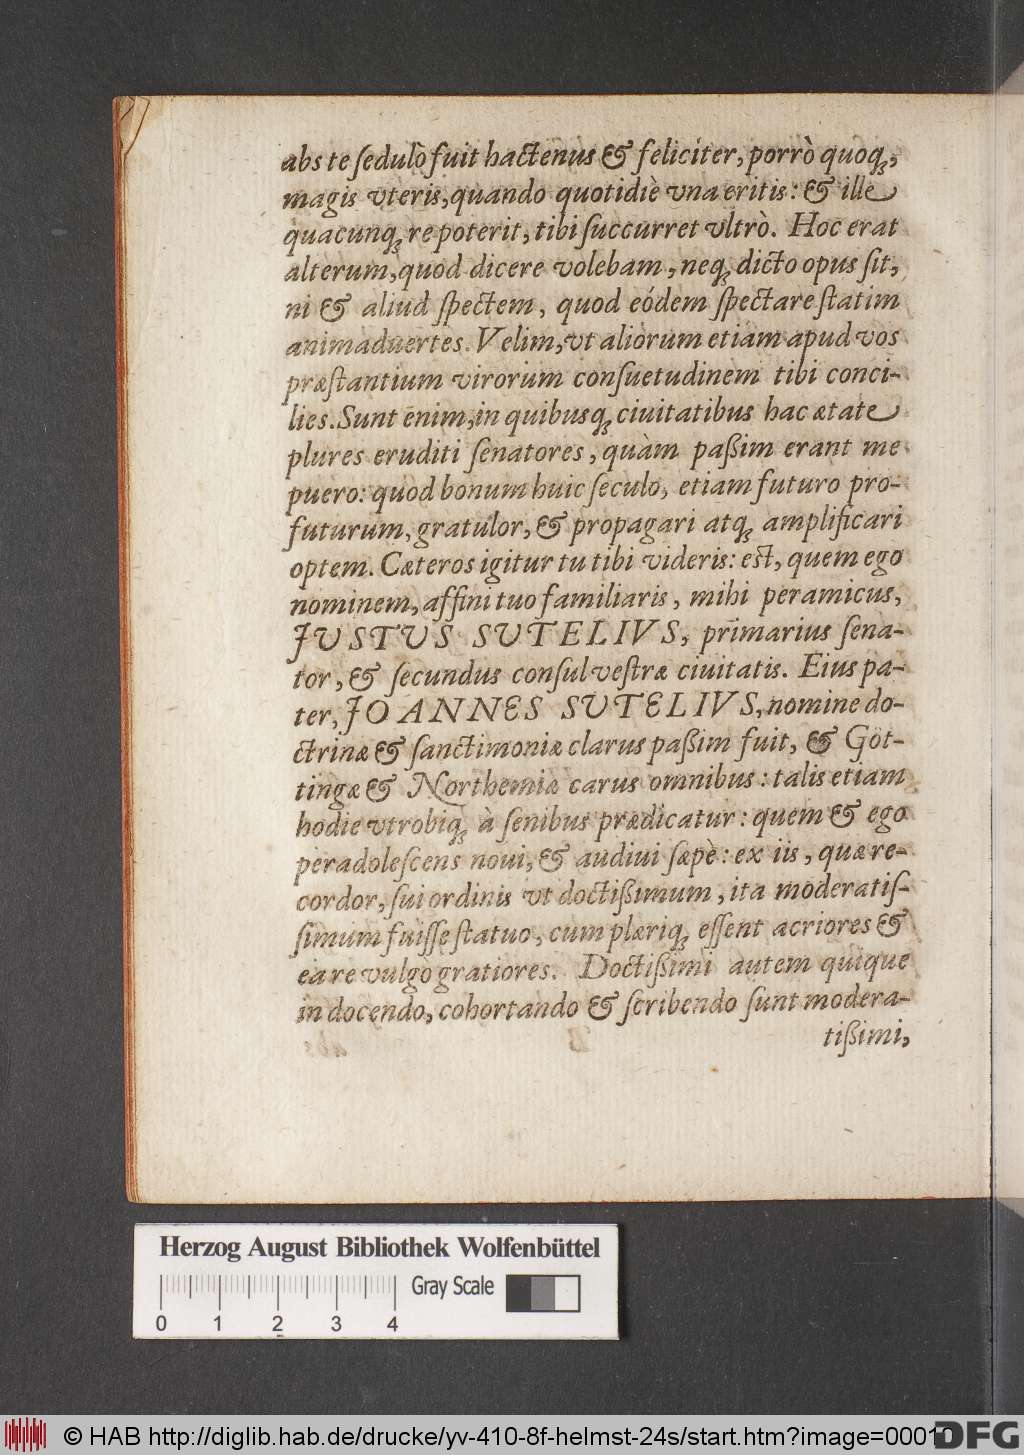 abs te ſedulò fuit hactenus & feliciter, porrò quoq́;,
magis vteris, quando quotidiè vna eritis: & ille
quacunq; re poterit, tibi ſuccurret vltrò. Hoc erat
alterum, quod dicere volebam, neq; dicto opus ſit,
ni & aliud ſpectem, quod eódem ſpectare ſtatim
animaduertes. Velim, vt aliorum etiam apud vos
præſtantium virorum conſuetudinem tibi conci-
lies. Sunt enim, in quibusq; ciuitatibus hac ætate
plures eruditi ſenatores, quàm paßim erant me
puero: quod bonum huic ſeculo, etiam futuro pro-
futurum, gratulor, & propagari atq; amplificari
optem. Cæteros igitur tu tibi videris: est, quem ego
nominem, affini tuo familiaris, mihi peramicus,
JUSTUS SUTELIVS, primarius ſena-
tor, & ſecundus conſul veſtræ ciuitatis. Eius pa-
ter, JOANNES SUTELIVS, nomine do-
ctrinæ & ſanctimoniæ clarus paßim fuit, & Göt-
tingæ & Northemiæ carus omnibus: talis etiam
hodie vtrobiq; à ſenibus prædicatur: quem & ego
peradoleſcens noui, & audiui ſæpè: ex iis, quæ re-
cordor, ſui ordinis vt doctißimum, ita moderatiſ-
ſimum fuiſſe ſtatuo, cum plæriq; eſſent acriores &
ea re vulgo gratiores. Doctißimi autem quique
in docendo, cohortando & ſcribendo ſunt modera-
tißimi,
Herzog August Bibliothek Wolfenbüttel
Gray Scale
0 1 2 3 4
© HAB http://diglib.hab.de/drucke/yv-410-8f-helmst-24s/start.htm?image=00010
DFG